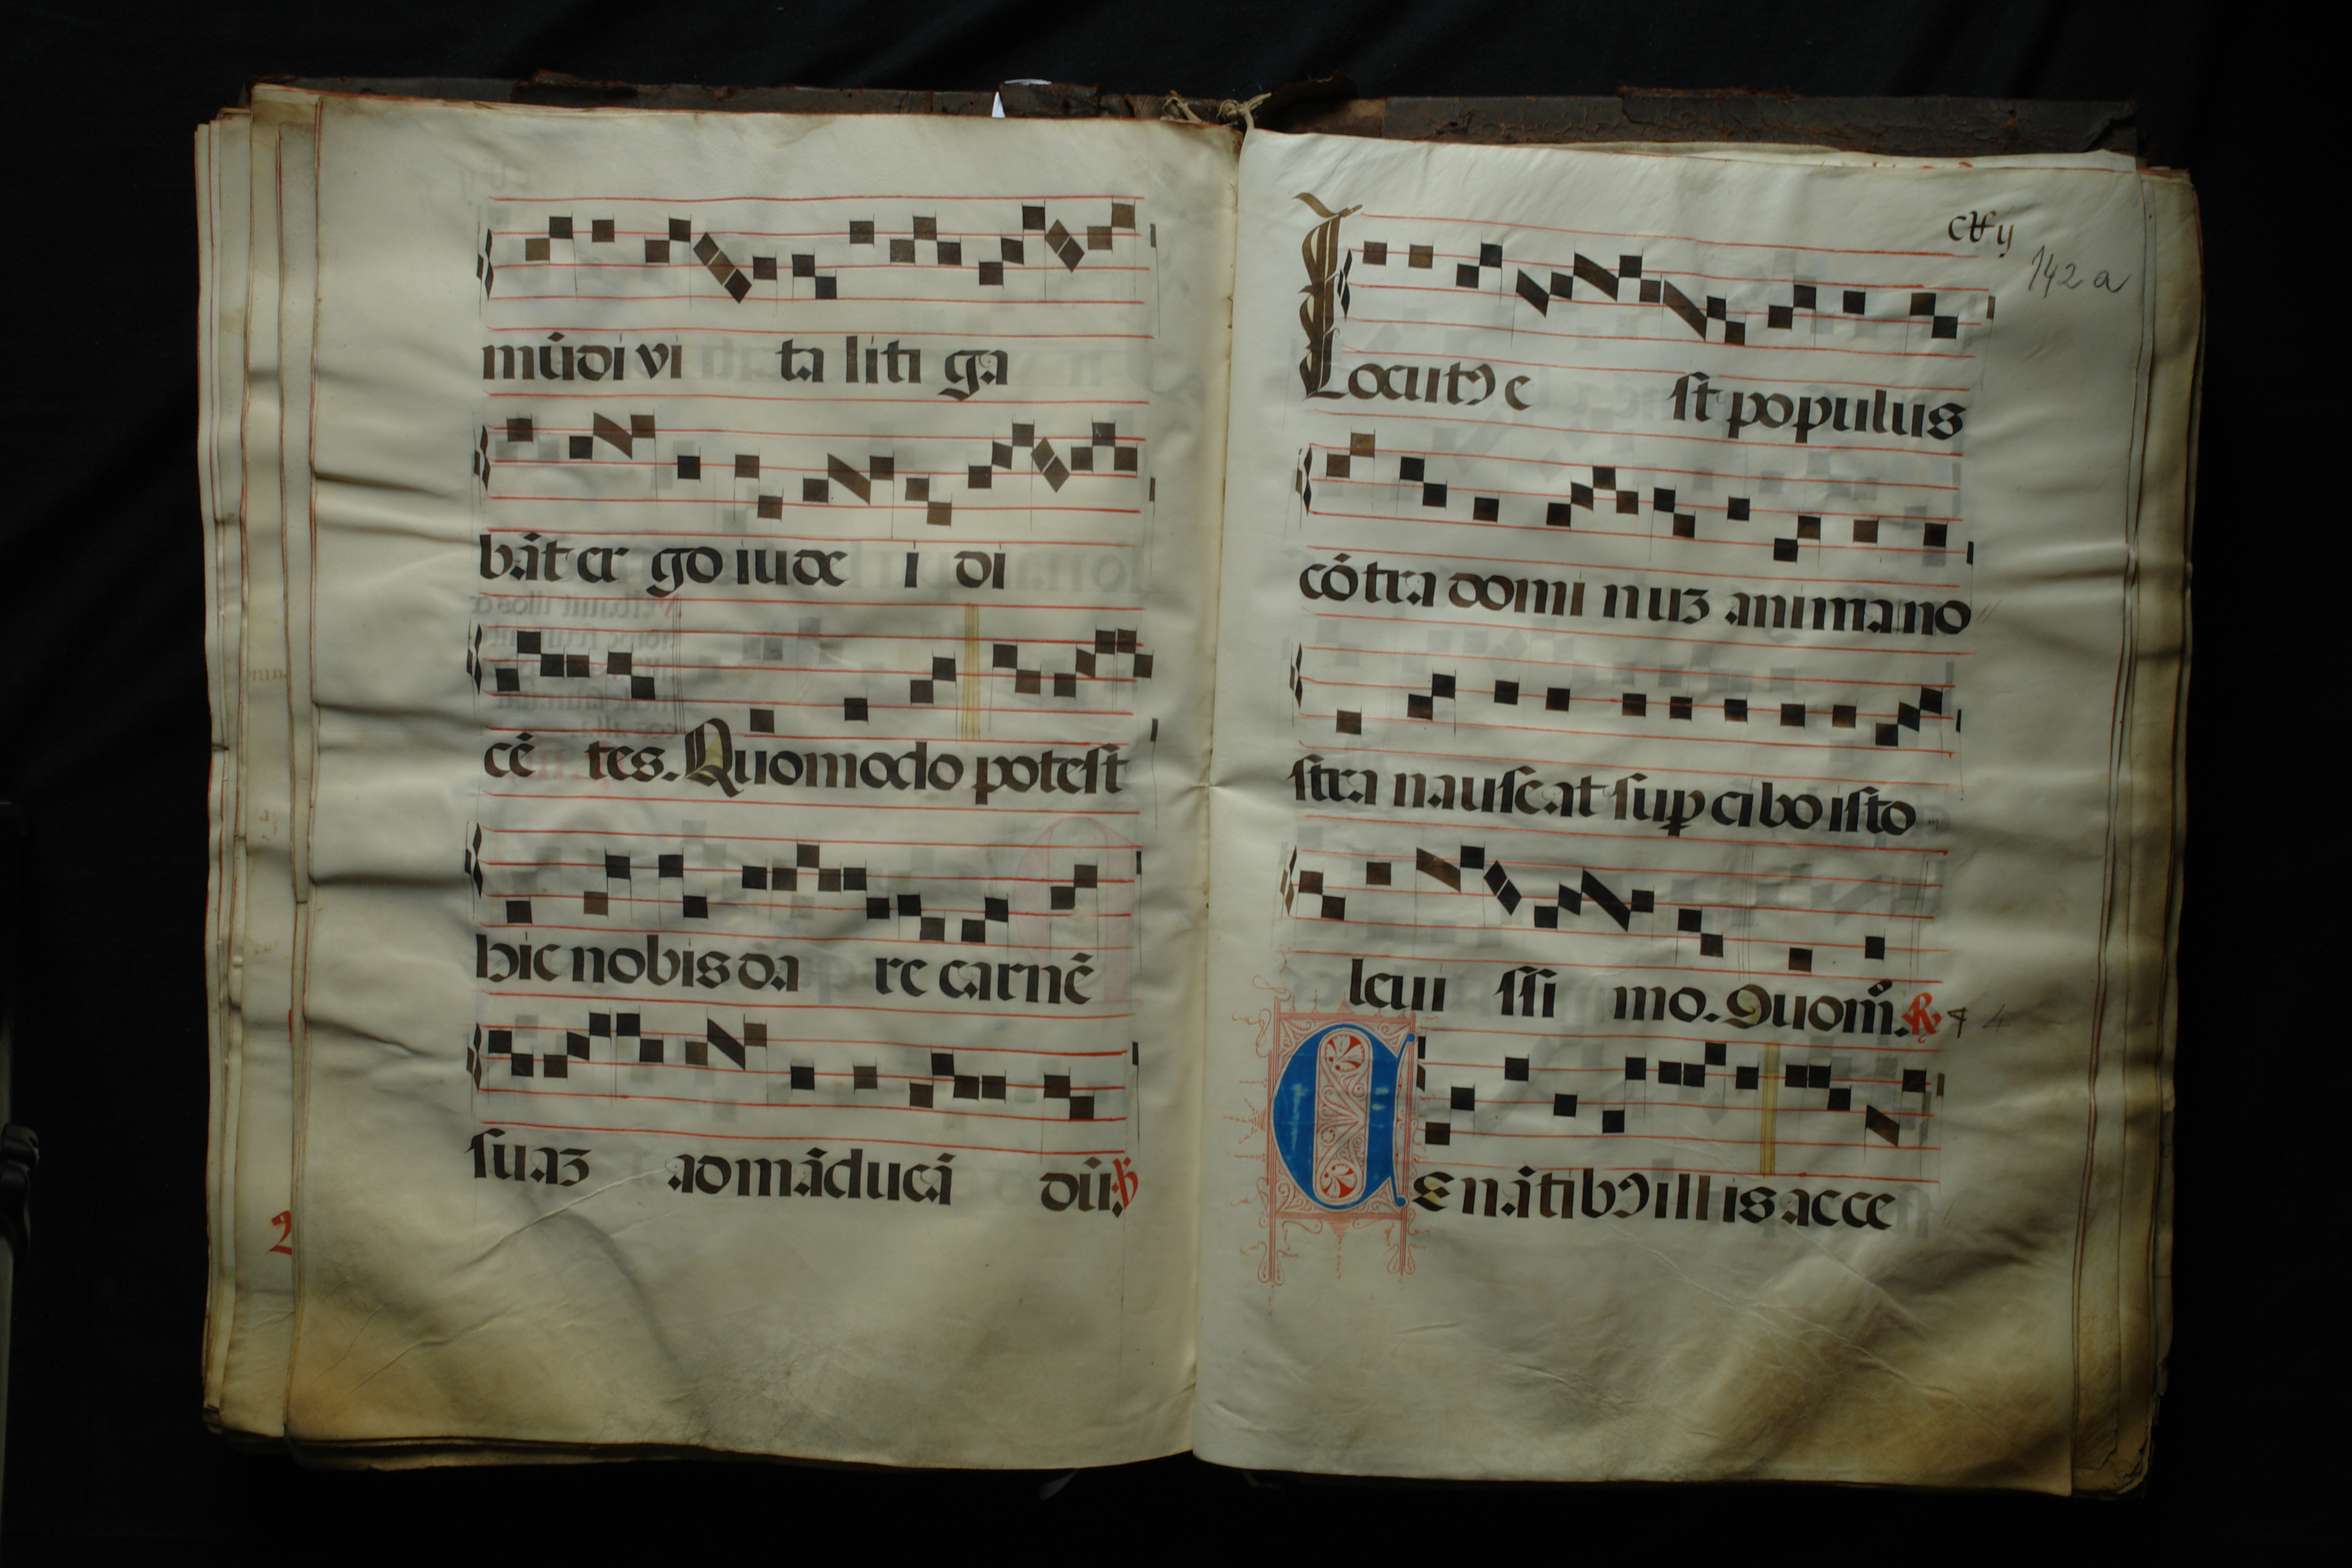 mūdi vi ta liti ga
bāt er go iude i di
cē tes. Quomodo potest
hic nobis da re carnē
suaꝫ ad māducā dū. ℣
cxvij
142 a
Locutꝰ e st populus
cō tra domi nuꝫ anima no
stra nauseat sup cibo isto
leui ssi mo. Quom̊. ℟
Cenātibꝰ illis acce